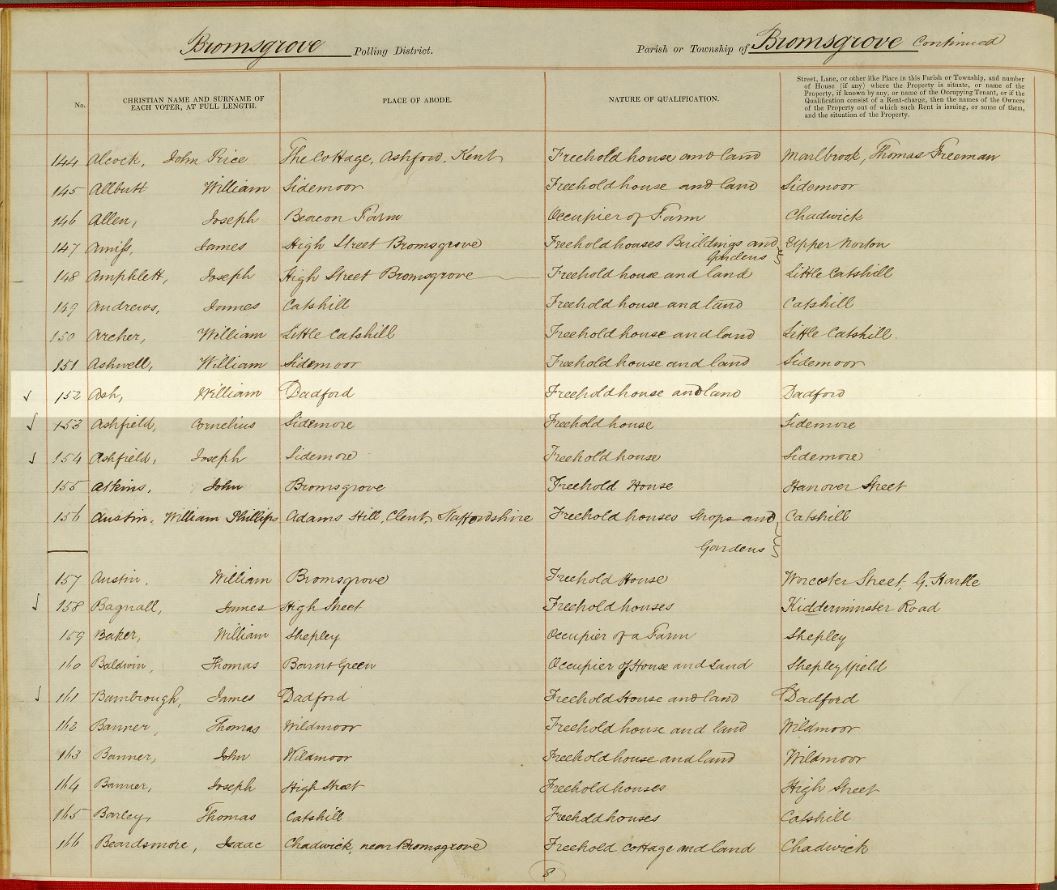 Bromsgrove Polling District. Parish or Township of Bromsgrove Continued
No. CHRISTIAN NAME AND SURNAME OF EACH VOTER, AT FULL LENGTH. PLACE OF ABODE. NATURE OF QUALIFICATION. Street, Lane, or other like Place in this Parish or Township, and number of House (if any) where the Property is situate, or name of the Property, if known by any, or name of the Occupying Tenant, or if the Qualification consist of a Rent-charge, then the names of the Owners of the Property out of which such Rent is issuing, or some of them, and the situation of the Property.
144 Alcock, John Price The Cottage, Ashford, Kent Freehold house and land Marlbrook, Thomas Freeman
145 Allbutt William Sidemoor Freehold house and land Sidemoor
146 Allen, Joseph Beacon Farm Occupier of Farm Chadwick
147 Amiss, James High Street Bromsgrove Freehold houses Buildings and Gardens Upper Norton
148 Amphlett, Joseph High Street Bromsgrove Freehold house and land Little Catshill
149 Andrews, James Catshill Freehold house and land Catshill
150 Archer, William Little Catshill Freehold house and land Little Catshill.
151 Ashwell, William Sidemoor Freehold house and land Sidemoor
152 Ash, William Dadford Freehold house and land Dadford
153 Ashfield, Cornelius Sidemore Freehold house Sidemore
154 Ashfield, Joseph Sidemore Freehold house Sidemore
155 Atkins, John Bromsgrove Freehold House Hanover Street
156 Austin, William Phillips Adams Hill, Clent, Staffordshire Freehold houses Shops and Gardens Catshill
157 Austin, William Bromsgrove Freehold House Worcester Street, G.
158 Bagnall, James High Street Freehold houses Kidderminster Road
159 Baker, William Shepley Occupier of a Farm Shepley
160 Baldwin, Thomas Barnt Green Occupier of House and Land Shepley field
161 Bambrough, James Dadford Freehold House and land Dadford
162 Banner, Thomas Wildmoor Freehold house and land Wildmoor
163 Banner, John Wildmoor Freehold house and land Wildmoor
164 Banner, Joseph High Street Freehold houses High Street
165 Barley, Thomas Catshill Freehold houses Catshill
166 Beardsmore, Isaac Chadwick, near Bromsgrove Freehold Cottage and land Chadwick
8